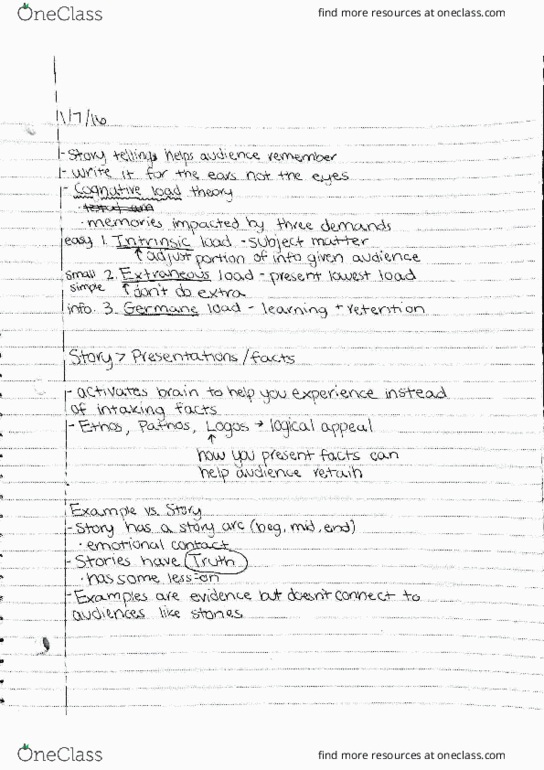 OneClass
find more resources at oneclass.com
11/7/16
- Story telling helps audience remember
- write it for the ears not the eyes
- Cognative load theory
• memories impacted by three demands
easy 1. Intrinsic load - subject matter
↑ adjust portion of info given audience
small 2. Extraneous load - present lowest load
simple ↑ don't do extra
info. 3. Germane load - learning + retention
Story > Presentations/facts
- activates brain to help you experience instead
of intaking facts
- Ethos, Pathos, Logos → logical appeal
↑
how you present facts can
help audience retain
Example vs. Story
- Story has a story arc (beg, mid, end)
• emotional contact
- Stories have Truth
• has some less-on
- Examples are evidence but doesn't connect to
audiences like stories
OneClass
find more resources at oneclass.com